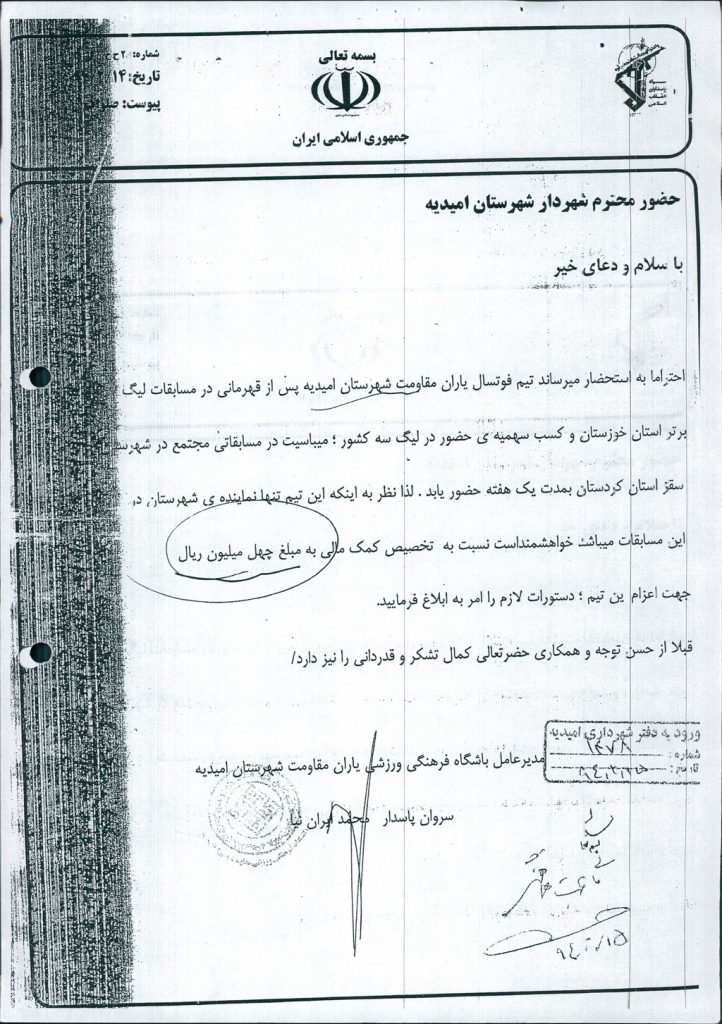 بسمه تعالی
جمهوری اسلامی ایران
سپاه
پاسداران
انقلاب
اسلامی
شماره:
تاریخ:
پیوست:
حضور محترم شهردار شهرستان امیدیه
با سلام و دعای خیر
احتراما به استحضار میرساند تیم فوتسال یاران مقاومت شهرستان امیدیه پس از قهرمانی در مسابقات لیگ
برتر استان خوزستان و کسب سهمیه ی حضور در لیگ سه کشور ؛ میباسیت در مسابقاتی مجتمع در شهرستان
سقز استان کردستان بمدت یک هفته حضور یابد . لذا نظر به اینکه این تیم تنها نماینده ی شهرستان در
این مسابقات میباشد خواهشمنداست نسبت به تخصیص کمک مالی به مبلغ چهل میلیون ریال
جهت اعزام ین تیم ؛ دستورات لازم را امر به ابلاغ فرمایید.
قبلا از حسن توجه و همکاری حضرتعالی کمال تشکر و قدردانی را نیز دارد/
ورود به دفتر شهرداری امیدیه
شماره: ۱۴۷۸
تاریخ:
مدیرعامل باشگاه فرهنگی ورزشی یاران مقاومت شهرستان امیدیه
سروان پاسدار محمد ایران نیا